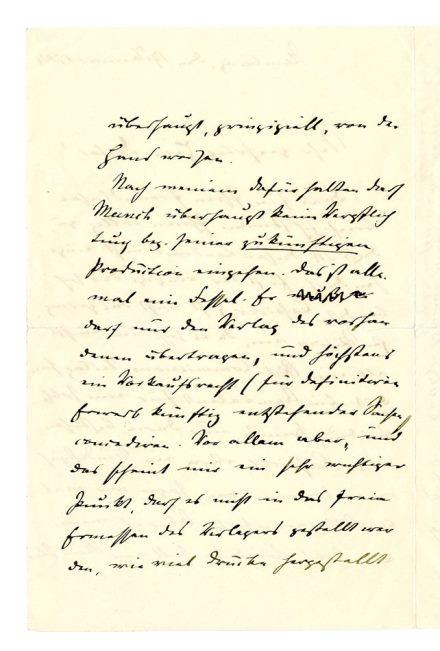 überhaupt, prinzipiell, von der
Hand weisen.
Nach meinem Dafürhalten darf
Munch überhaupt keine Verpflich
tung bez. seiner zukünftigen
Production eingehen. Das ist alle
mal eine Fessel. Er
darf nur den Verlag des vorhan
denen übertragen, und höchstens
ein Vorkaufsrecht (für definitiven
Erwerb künftig entstehender Sachen)
concediren. Vor allem aber, und
das scheint mir ein sehr wichtiger
Punkt, darf es nicht in das freie
Ermessen des Verlegers gestellt wer
den, wie viel Drucke hergestellt